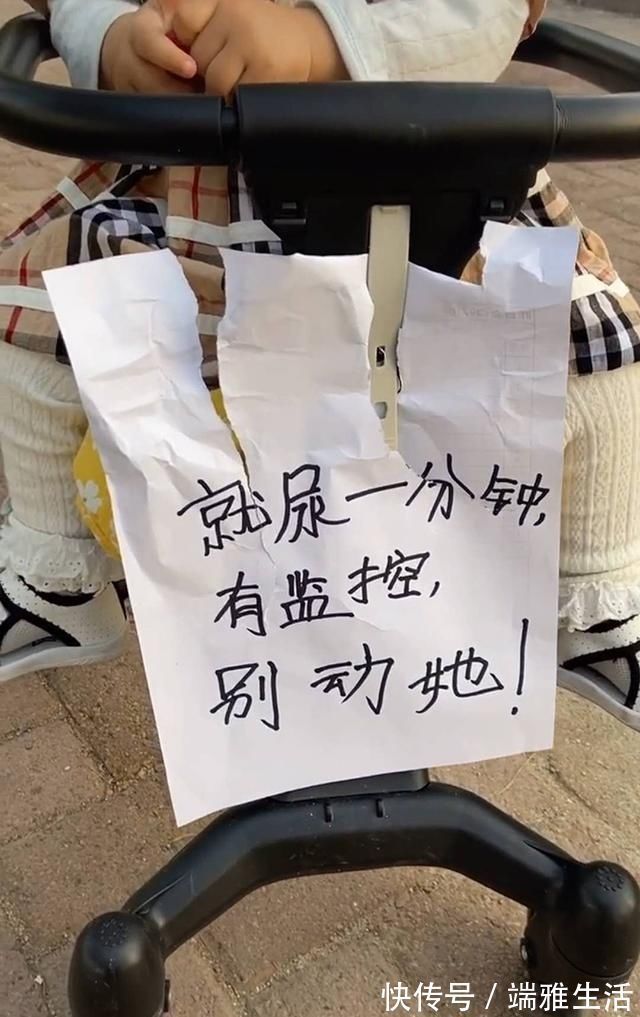 就尿一分钟,
有监控,
别动她!
快传号 / 端雅生活